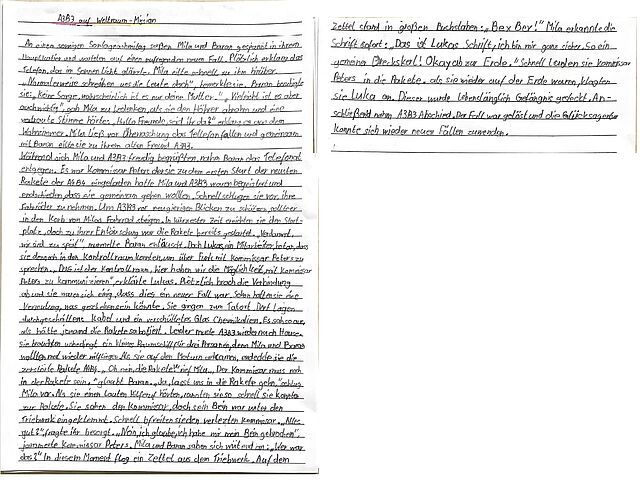 A3B3 auf Weltraum-Mission
An einem sonnigen Sonntagvormittag saßen Mila und Baran gespannt in ihrem
Hauptquartier und warteten auf einen aufregenden neuen Fall. Plötzlich erklang das
Telefon, das im Sonnenlicht glänzte. Mila eilte schnell zu ihm hinüber.
"Normalerweise schreiben uns die Leute doch", bemerkte sie. Baran beruhigte
sie: "Keine Sorge, wahrscheinlich ist es nur deine Mutter." "Vielleicht ist es aber
auch wichtig", gab Mila zu bedenken, als sie den Hörer abnahm und eine
vertraute Stimme hörte. "Hallo Freunde, seid ihr da?" erklang es aus dem
Wohnzimmer. Mila ließ vor Überraschung das Telefon fallen und gemeinsam
mit Baran eilte sie zu ihrem alten Freund A3B3.
Während sich Mila und A3B3 freudig begrüßten, nahm Baran das Telefonat
entgegen. Es war Kommissar Peters der sie zu dem ersten Start der neusten
Rakete der A4B4 eingeladen hatte. Mila und A3B3 waren begeistert und
entschieden, dass sie gemeinsam gehen wollten. Schnell schlugen sie vor, ihre
Fahrräder zu nehmen. Um A3B3 vor neugierigen Blicken zu schützen, sollte er
in den Korb von Milas Fahrrad steigen. In kürzester Zeit erreichten sie den Start-
platz, doch zu ihrer Enttäuschung war die Rakete bereits gestartet. "Verdammt,
wir sind zu spät", murmelte Baran enttäuscht. Doch Lukas, ein Mitarbeiter, bot an, dass
sie dennoch in den Kontrollraum konnten, um über Funk mit Kommissar Peters zu
sprechen. "Das ist der Kontrollraum, hier haben wir die Möglichkeit, mit Kommissar
Peters zu kommunizieren", erklärte Lukas. Plötzlich brach die Verbindung
ab und sie waren sich einig, dass dies ein neuer Fall war. Schon hatten sie eine
Vermutung, was geschehen sein könnte. Sie gingen zum Tatort. Dort lagen
durchgeschnittene Kabel und ein verschüttetes Glas Chemikalien. Es sah so aus,
als hätte jemand die Rakete sabotiert. Leider musste A3B3 wieder nach Hause.
Sie brauchten unbedingt ein kleines Raumschiff für drei Personen, denn Mila und Baran
wollten mal wieder mitfliegen. Als sie auf dem Mond ankamen, entdeckten sie die
zerstörte Rakete A4B4. "Oh nein, die Rakete!" rief Mila. "Der Kommissar muss noch
in der Rakete sein." glaubt Baran. "Ja, lasst uns in die Rakete gehn." schlug
Mila vor. Als sie einen lauten Hilferuf hörten, rannten sie so schnell sie konnten
zur Rakete. Sie sahen den Kommissar, doch sein Bein war unter dem
Triebwerk eingeklemmt. Schnell befreiten sie den verletzten Kommissar. "Alles
gut?", fragte ihr besorgt. "Nein, ich glaube, ich habe mir mein Bein gebrochen",
jammerte Kommissar Peters. Mila und Baran sahen sich wütend an: "Wer war
das?" In diesem Moment flog ein Zettel aus dem Triebwerk. Auf dem
Zettel stand in großen Buchstaben: "Bey Bey!" Mila erkannte die
Schrift sofort: "Das ist Lukas Schrift, ich bin mir ganz sicher. So ein
gemeiner Dreckskerl! Okay ab zur Erde." Schnell luden sie Kommissar
Peters in die Rakete. Als sie wieder auf der Erde waren, klagten
sie Luka an. Dieser wurde lebenslänglich Gefängnis gesteckt. An-
schließend nahm A3B3 Abschied. Der Fall war gelöst und die
konnte sich wieder neuen Fällen zuwenden.